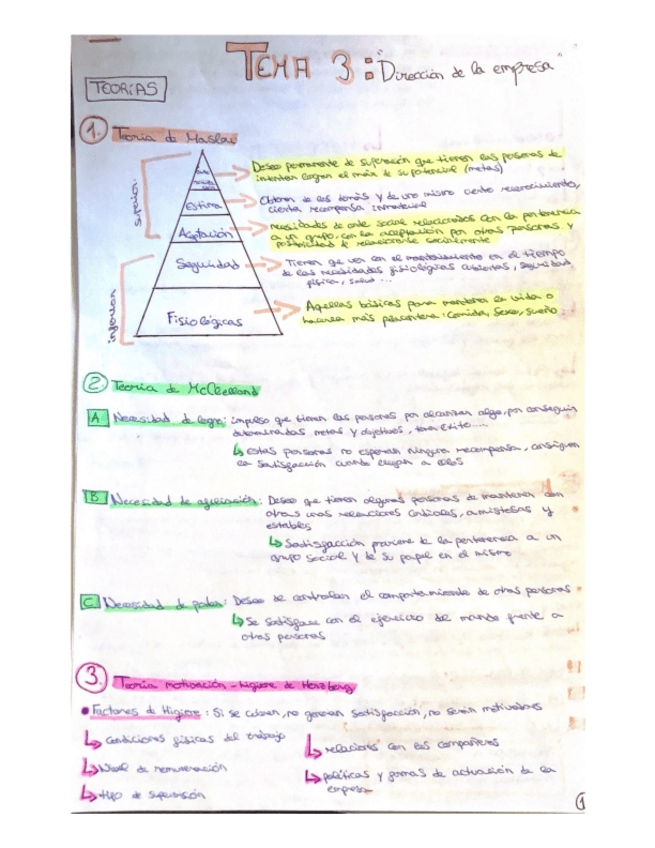 TEMA 3: "Dirección de la empresa"
TEORÍAS
1. Teoría de Maslow
superior
inferior
Estima
Aceptación
Seguridad
Fisiológicas
Deseo permanente de superación que tienen las personas de
intentar lograr el máx de su potencial (metas)
Obtener de los demás y de uno mismo cierto reconocimiento,
cierta recompensa inmaterial
necesidades de orden social relacionadas con la pertenencia
a un grupo, con la aceptación por otras personas y
posibilidad de relacionarse socialmente
Tienen que ver con el mantenimiento en el tiempo
de las necesidades fisiológicas cubiertas, seguridad
física, salud...
Aquellas básicas para mantener la vida o
hacerla más placentera: Comida, Sexo, sueño
2. Teoría de McClelland
A Necesidad de logro: impulso que tienen las personas por alcanzar algo, por conseguir
determinadas metas y objetivos, tener éxito.....
estas personas no esperan ninguna recompensa, consiguen
la satisfacción cuando llegan a ellos
B Necesidad de afiliación: Deseo que tienen algunas personas de mantener con
otras unas relaciones cordiales, amistosas y
estables
Satisfacción proviene de la pertenencia a un
grupo social y de su papel en el mismo
C Necesidad de poder: Deseo de controlar el comportamiento de otras personas
Se satisface con el ejercicio del mando frente a
otras personas
3. Teoría motivación-higiene de Herzberg
• Factores de Higiene: Si se cubren, no generan satisfacción, no serán motivadores
Condiciones físicas del trabajo
Nivel de remuneración
tipo de supervisión
relaciones con los compañeros
políticas y formas de actuación de la
empresa
1